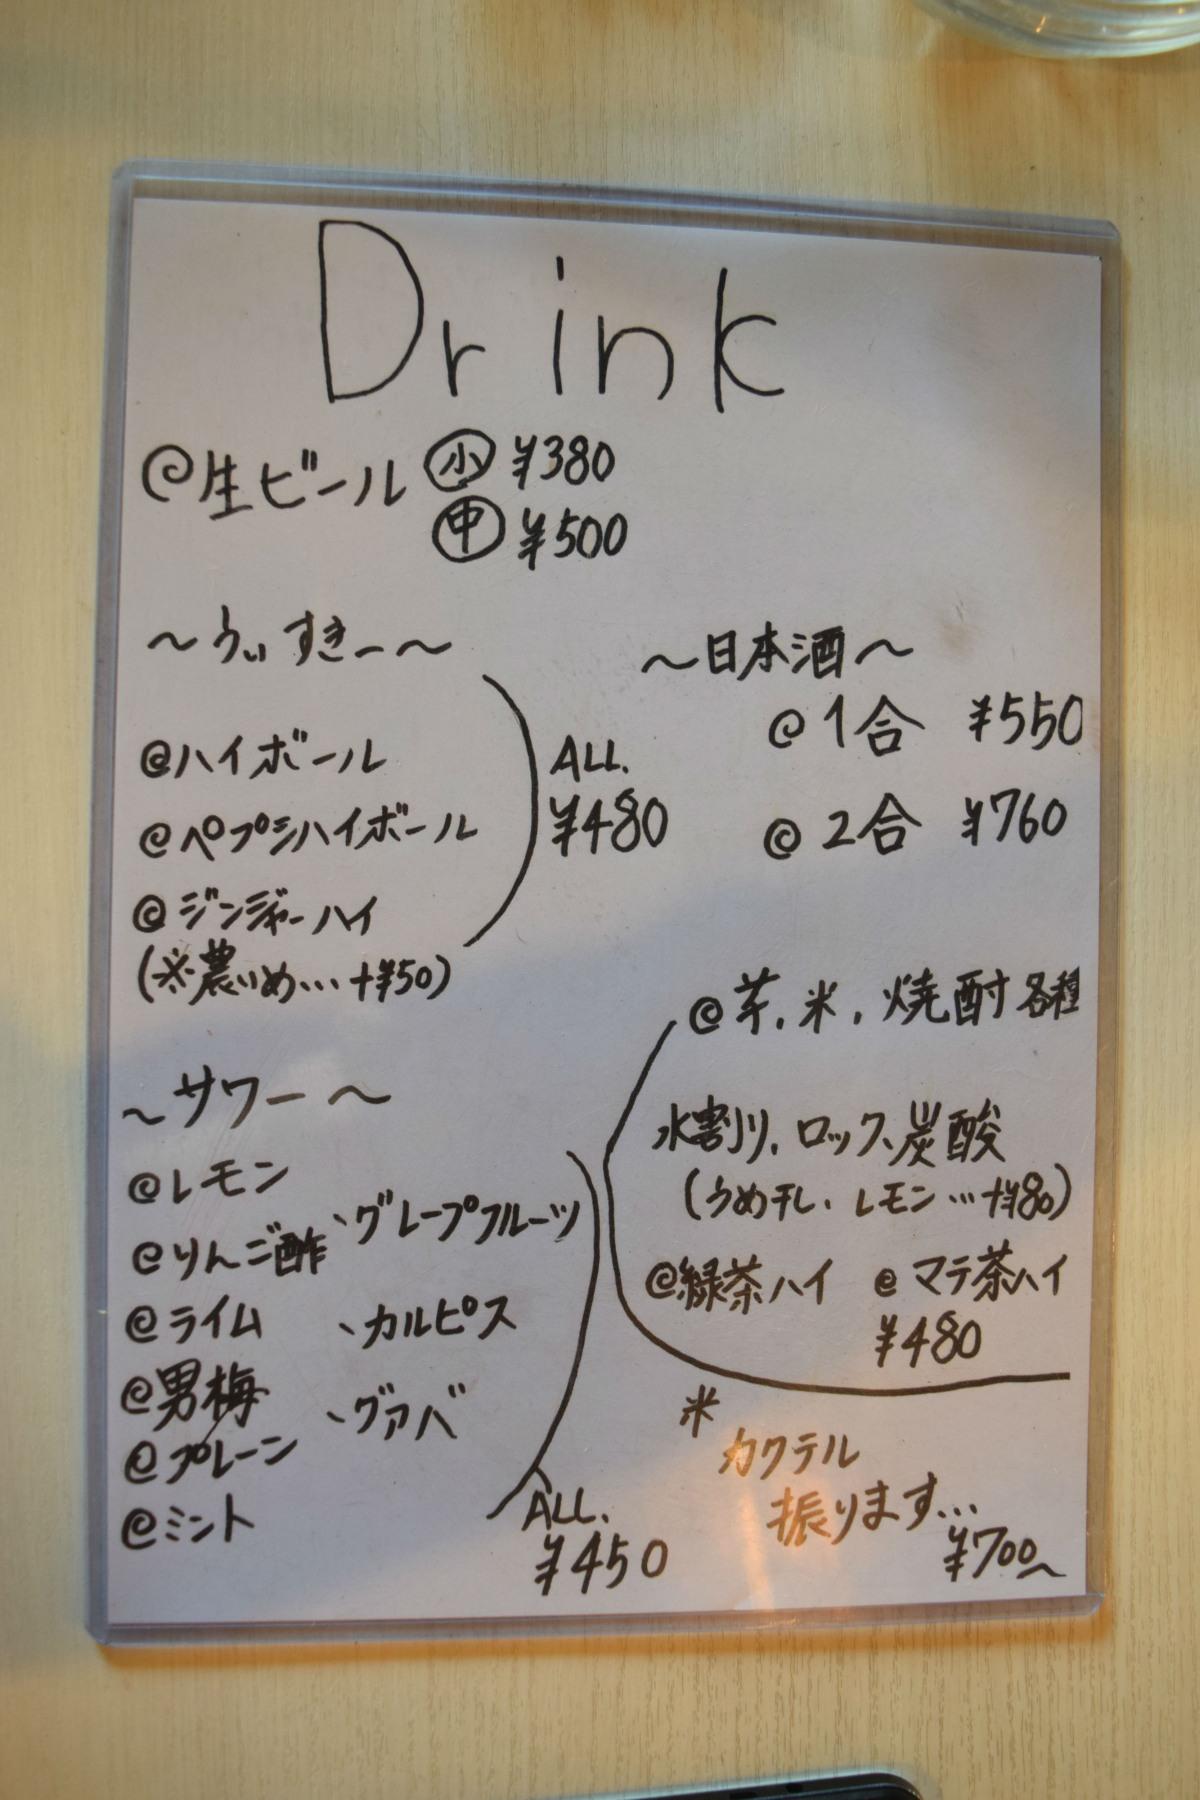 Drink
@生ビール ㊥小 ¥380
㊥ ¥500
～うぃすきー～
@ハイボール
@ペプシハイボール
@ジンジャーハイ
(※濃いめ…+¥50)
ALL.
¥480
～日本酒～
@1合 ¥550
@2合 ¥760
～サワー～
@レモン
@りんご酢 、グレープフルーツ
@ライム 、カルピス
@男梅 、グァバ
@プレーン
@ミント
ALL.
¥450
@芋、米、焼酎各種
水割り、ロック、炭酸
(うめ干し、レモン…+¥80)
@緑茶ハイ @マテ茶ハイ
¥480
※
カクテル
振ります…
¥700～